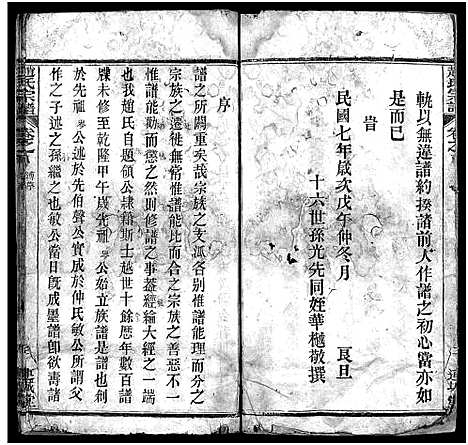 軌以無違譜約揆諸前人作譜之初心當亦如
是而已
旹
民國七年歲次戊午仲冬月 良旦
十六世孫光先同姪華樾敬撰
序
譜之所關重矣哉宗族之支派各別惟譜能理而分之
宗族之遷徙無常惟譜能比而合之宗族之善惡不一
惟譜能勸而懲之然則修譜之事葢經綸大經之一端
也我趙氏自題領公隸籍斯土越世十餘歷年數百譜
牒未修至乾隆甲午歲先祖 公始立族譜是譜也
作之 公述於先伯聲公實成於仲氏敏公所謂父
作之子述之孫繼之也敏公當日既成墨譜卽欲壽諸
趙氏宗譜
卷之首